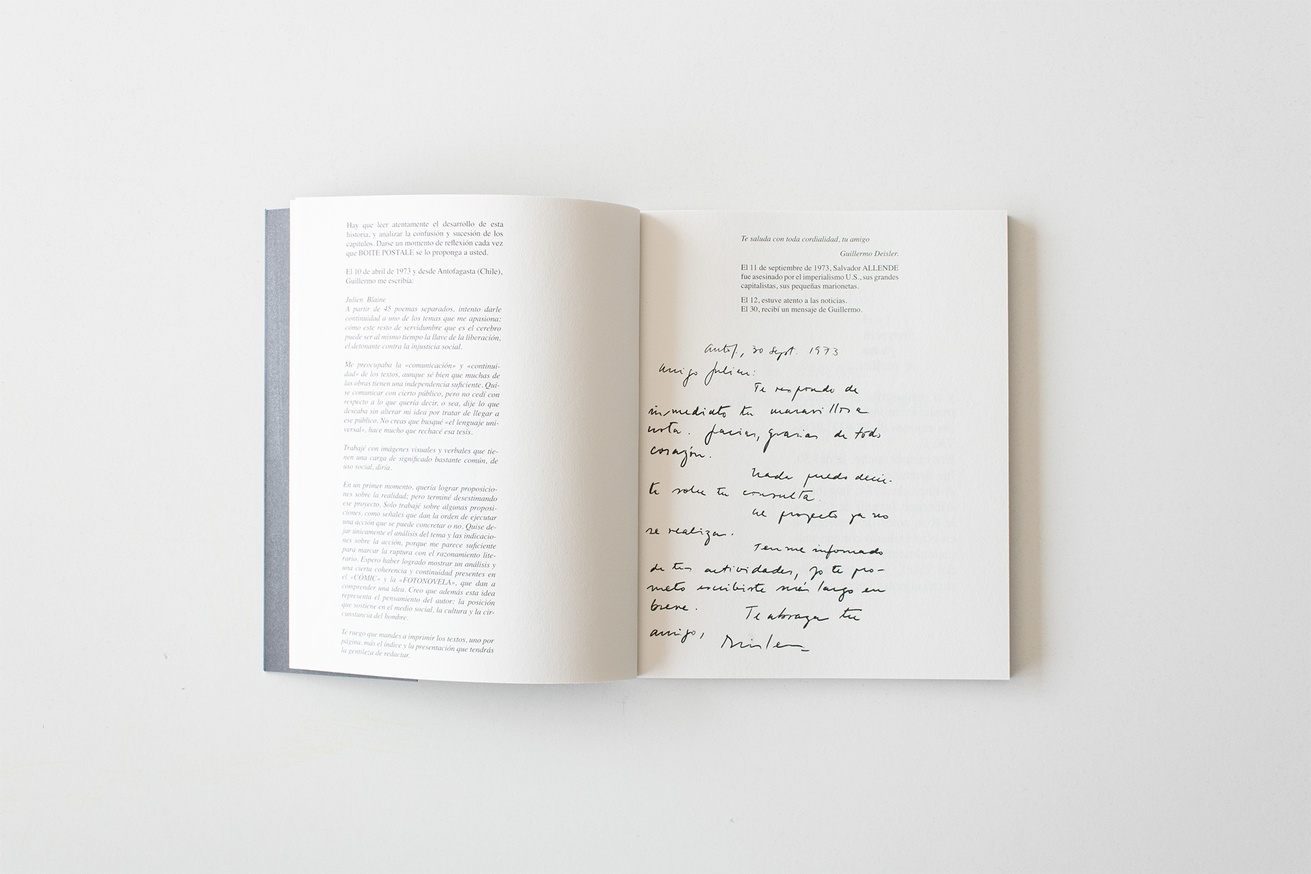 Hay que leer atentamente el desarrollo de esta
historia, y analizar la confusión y sucesión de los
capítulos. Darse un momento de reflexión cada vez
que BOITE POSTALE se lo proponga a usted.
El 10 de abril de 1973 y desde Antofagasta (Chile),
Guillermo me escribía:
Julien Blaine
A partir de 45 poemas separados, intento darle
continuidad a uno de los temas que me apasiona:
cómo este resto de servidumbre que es el cerebro
puede ser al mismo tiempo la llave de la liberación,
el detonante contra la injusticia social.
Me preocupaba la «comunicación» y «continui-
dad» de los textos, aunque sé bien que muchas de
las obras tienen una independencia suficiente. Qui-
se comunicar con cierto público, pero no cedí con
respecto a lo que quería decir, o sea, dije lo que
deseaba sin alterar mi idea por tratar de llegar a
ese público. No creas que busqué «el lenguaje uni-
versal», hace mucho que rechacé esa tesis.
Trabajé con imágenes visuales y verbales que tie-
nen una carga de significado bastante común, de
uso social, diría.
En un primer momento, quería lograr proposicio-
nes sobre la realidad; pero terminé desestimando
ese proyecto. Solo trabajé sobre algunas proposi-
ciones, como señales que dan la orden de ejecutar
una acción que se puede concretar o no. Quise de-
jar únicamente el análisis del tema y las indicacio-
nes sobre la acción, porque me parece suficiente
para marcar la ruptura con el razonamiento lite-
rario. Espero haber logrado mostrar un análisis y
una cierta coherencia y continuidad presentes en
el «COMIC» y la «FOTONOVELA», que dan a
comprender una idea. Creo que además esta idea
representa el pensamiento del autor; la posición
que sostiene en el medio social, la cultura y la cir-
cunstancia del hombre.
Te ruego que mandes a imprimir los textos, uno por
página, más el índice y la presentación que tendrás
la gentileza de redactar.
Te saluda con toda cordialidad, tu amigo
Guillermo Deisler.
El 11 de septiembre de 1973, Salvador ALLENDE
fue asesinado por el imperialismo U.S., sus grandes
capitalistas, sus pequeñas marionetas.
El 12, estuve atento a las noticias.
El 30, recibí un mensaje de Guillermo.
Antof., 30 sept. 1973
Amigo Julien:
Te respondo de
inmediato tu maravillosa
nota. Gracias, gracias de todo
corazón.
Nada puedo decir-
te sobre tu consulta.
El proyecto ya no
se realiza.
Tenme informado
de tus actividades, yo te pro-
meto escribirte más largo en
breve. Te abraza tu
amigo, Deisler